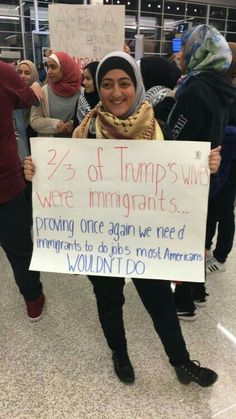 AMERICA
2/3 of Trump's wives
were immigrants...
proving once again we need
immigrants to do jobs most Americans
WOULDN'T DO